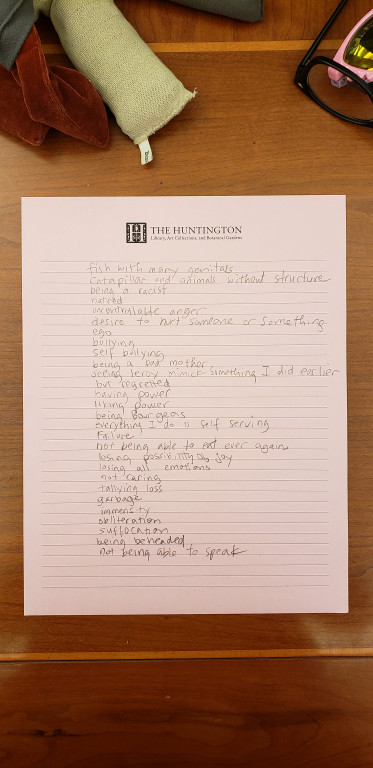 THE HUNTINGTON
Library, Art Collections, and Botanical Gardens
fish with many genitals
Catapillar and animals without structure
being a racist
hatred
uncontrolable anger
desire to hurt someone or something
ego
bullying
self bullying
being a bad mother
seeing leroy mimick something I did earlier
but regretted
having power
liking power
being Bourgeois
everything I do is self serving
Failure
not being able to eat ever again
losing possibility of joy
losing all emotions
not caring
tallying loss
garbage
immensity
obliteration
suffocation
being beheaded
not being able to speak